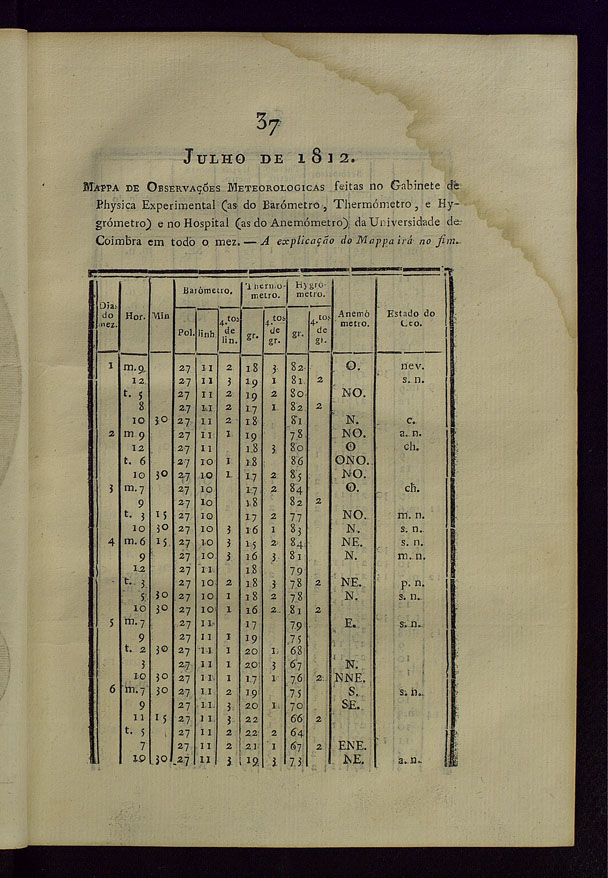 37
JULHO DE 1812.
MAPPA DE OBSERVAÇÕES METEOROLOGICAS feitas no Gabinete de
Physica Experimental (as do Barómetro, Thermómetro, e Hy-
grómetro) e no Hospital (as do Anemómetro) da Universidade de
Coimbra em todo o mez. — A explicação do Mappa irá no fim.
Dias do mez. Hor. Min Barómetro. Thermo-metro. Hygro-metro. Anemó metro. Estado do Ceo.
Pol. linh 4.tos de lin. gr. 4.tos de gr. gr. 4.tos de gr.
1 m. 9 27 11 2 18 3 82 O. nev.
12 27 11 3 19 1 81 2 s. n.
t. 5 27 11 2 19 2 80 NO.
8 27 11 2 17 1 82 2
10 30 27 11 2 18 81 N. c.
2 m 9 27 11 1 19 78 NO. a. n.
12 27 11 18 3 80 O ch.
t. 6 27 10 1 18 86 ONO.
10 30 27 10 1 17 2 85 NO.
3 m. 7 27 10 17 2 84 O. ch.
9 27 10 18 82 2
t. 3 15 27 10 17 2 77 NO. m. n.
10 30 27 10 3 16 1 83 N. s. n.
4 m. 6 15 27 10 3 15 2 84 NE. s. n.
9 27 10 3 16 3 81 N. m. n.
12 27 11 18 79
t. 3 27 10 2 18 3 78 2 NE. p. n.
5 30 27 10 1 18 2 78 N. s. n.
10 30 27 10 1 16 2 81 2
5 m. 7 27 11 17 79 E. s. n.
9 27 11 1 19 75
t. 2 30 27 11 1 20 1 68
3 27 11 1 20 3 67 N.
10 30 27 11 1 17 1 76 2 NNE.
6 m. 7 30 27 11 2 19 75 S. s. n.
9 27 11 3 20 1 70 SE.
11 15 27 11 3 22 66 2
t. 5 27 11 2 22 2 64
7 27 11 2 21 1 67 2 ENE.
10 30 27 11 3 19 3 73 NE. a. n.